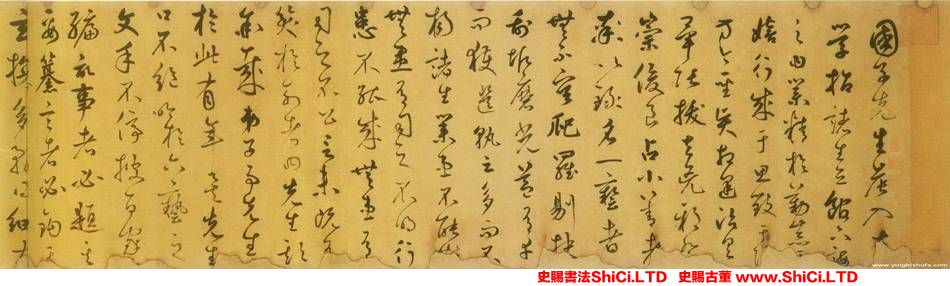 國子先生晨入太
學招諸生立館下誨
之曰業精於勤荒于
嬉行成于思毀于
方今聖賢相逢治具
畢張拔去兇邪登
崇俊良占小善者
率以錄名一藝者
無不容爬羅剔抉
刮垢磨光蓋有幸
而獲選孰云多而不
揚諸生業患不能精
無患有司之不明行
患不能成無患有
司之不公言未既有
笑於列者曰先生欺
余哉弟子事先生
於此有年矣先生
口不絕吟於六藝之
文手不停披百家
編記事者必題其
要纂言者必鉤其
玄多務得細大
www.yingbishufa.com
史賜書法ShiCi.LTD 史賜古董 www.ShiCi.LTD